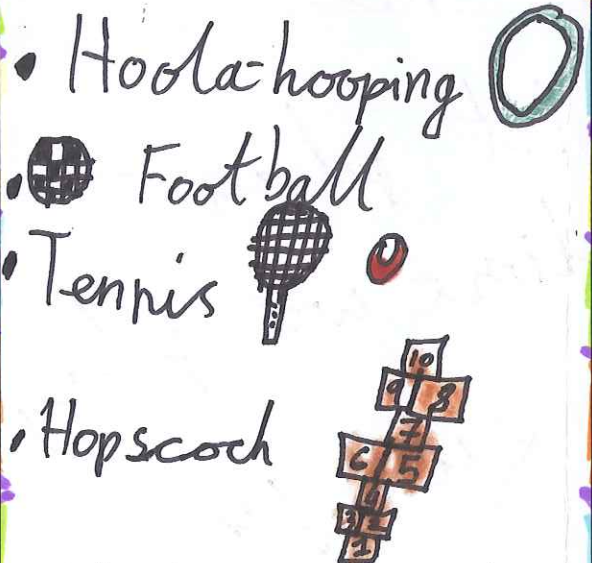 • Hoola-hooping
• Football
• Tennis
• Hopscoch
10
9 8
7
6 5
4
3 2
1